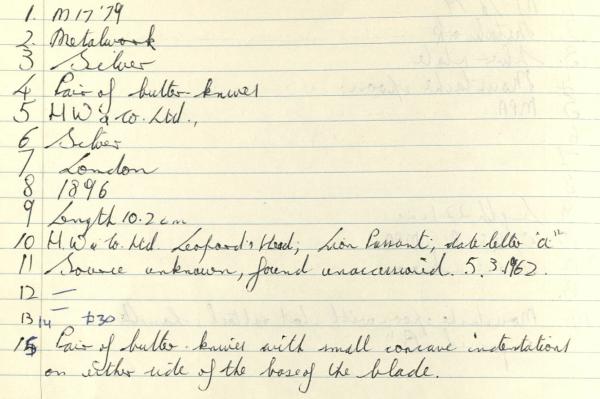 1. M17'79
2. Metalwork
3 Silver
4 Pair of butter-knives
5 H.W & Co. Ltd.,
6 Silver
7 London
8 1896
9 Length 10.2 cm
10 H.W & Co. Ltd. Leopard's Head; Lion Passant; date letter "a"
11 Source unknown, found unaccessioned. 5.3.1962.
12 —
13 —
14 $30
15 Pair of butter-knives with small concave indentations
on either side of the base of the blade.